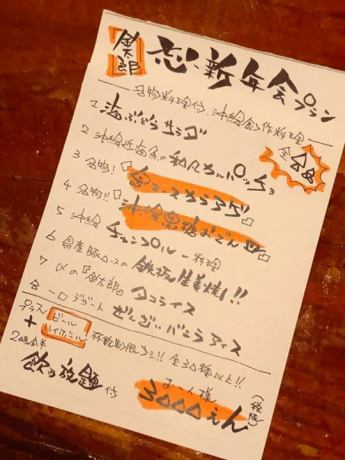 金太郎
忘・新年会プラン
名物料理付 沖縄創作料理
全8品
1 海ぶどうサラダ
2 沖縄近海魚の和風カルパッチョ
3 名物!
4 名物!! 沖縄黒糖おでん
5 沖縄 チャンプルー料理
6 県産豚ロースの鉄板生姜焼!!
7 〆の『金太郎』タコライス
8 一口デザート ぜんざいバニラアイス
プラス ビール ハイボール 種飲物込ミ!! 全30種以上!!
+ 2時間半 飲み放題付
お一人様
3000えん
(税抜)